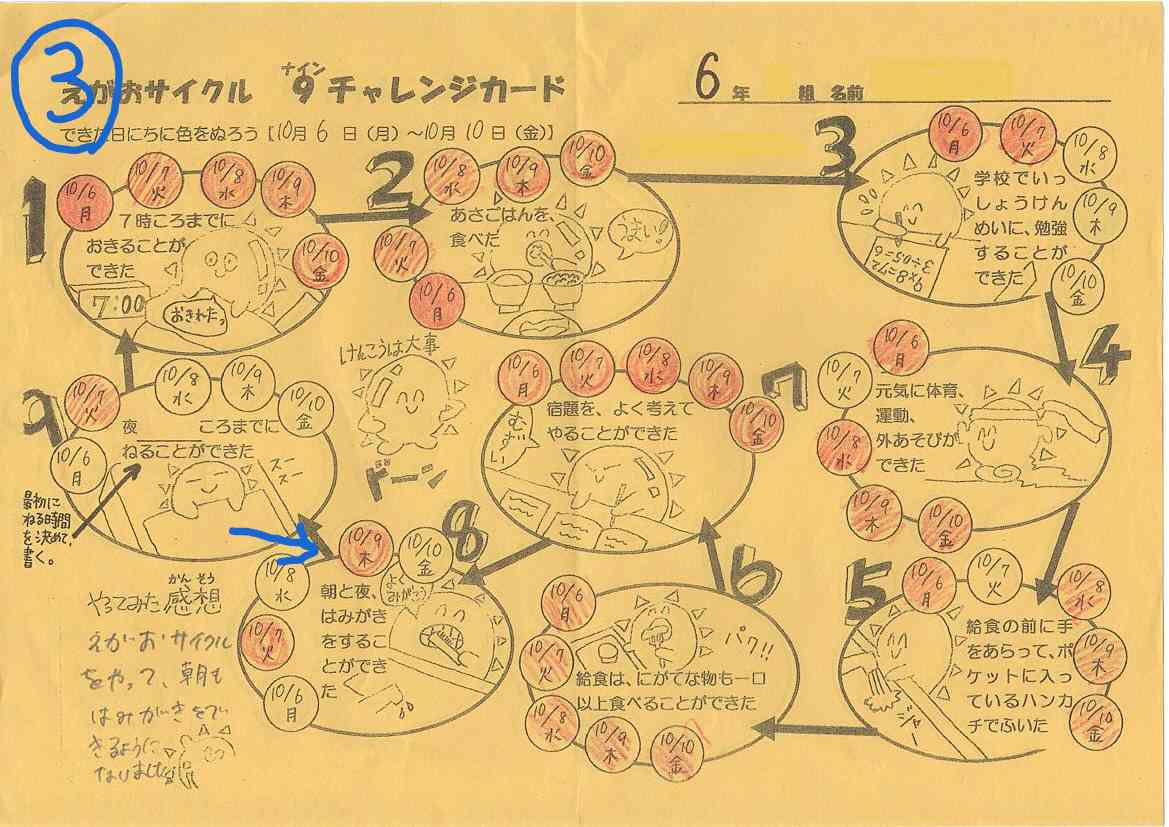 3
えがおサイクル 9 チャレンジカード
ナイン
6 年 組 名前
できた日にちに色をぬろう【10月 6 日(月)~10月 10 日(金)】
1
10/6 月
10/7 火
10/8 水
10/9 木
10/10 金
7時ころまでに
おきることが
できた
7:00
おきれたっ
2
10/6 月
10/7 火
10/8 水
10/9 木
10/10 金
あさごはんを、
食べた
うまい!!
3
10/6 月
10/7 火
10/8 水
10/9 木
10/10 金
学校でいっ
しょうけん
めいに、勉強
することが
できた
9×8=72
4
10/6 月
10/7 火
10/8 水
10/9 木
10/10 金
元気に体育、
運動、
外あそびが
できた
5
10/6 月
10/7 火
10/8 水
10/9 木
10/10 金
給食の前に手
をあらって、ポ
ケットに入っ
ているハンカ
チでふいた
ジャー
6
10/6 月
10/7 火
10/8 水
10/9 木
10/10 金
給食は、にがてな物も一口
以上食べることができた
パク!!
7
10/6 月
10/7 火
10/8 水
10/9 木
10/10 金
宿題を、よく考えて
やることができた
むずい
8
10/6 月
10/7 火
10/8 水
10/9 木
10/10 金
朝と夜、
はみがき
をするこ
とができ
た
よく
みがこう
9
10/6 月
10/7 火
10/8 水
10/9 木
10/10 金
夜 ころまでに
ねることができた
スー
スー
最初に
ねる時間
を決めて、
書く。
けんこうは大事
ドーン
やってみた感想
かんそう
えがおサイクル
をやって、朝も
はみがきをで
きるように
なりました